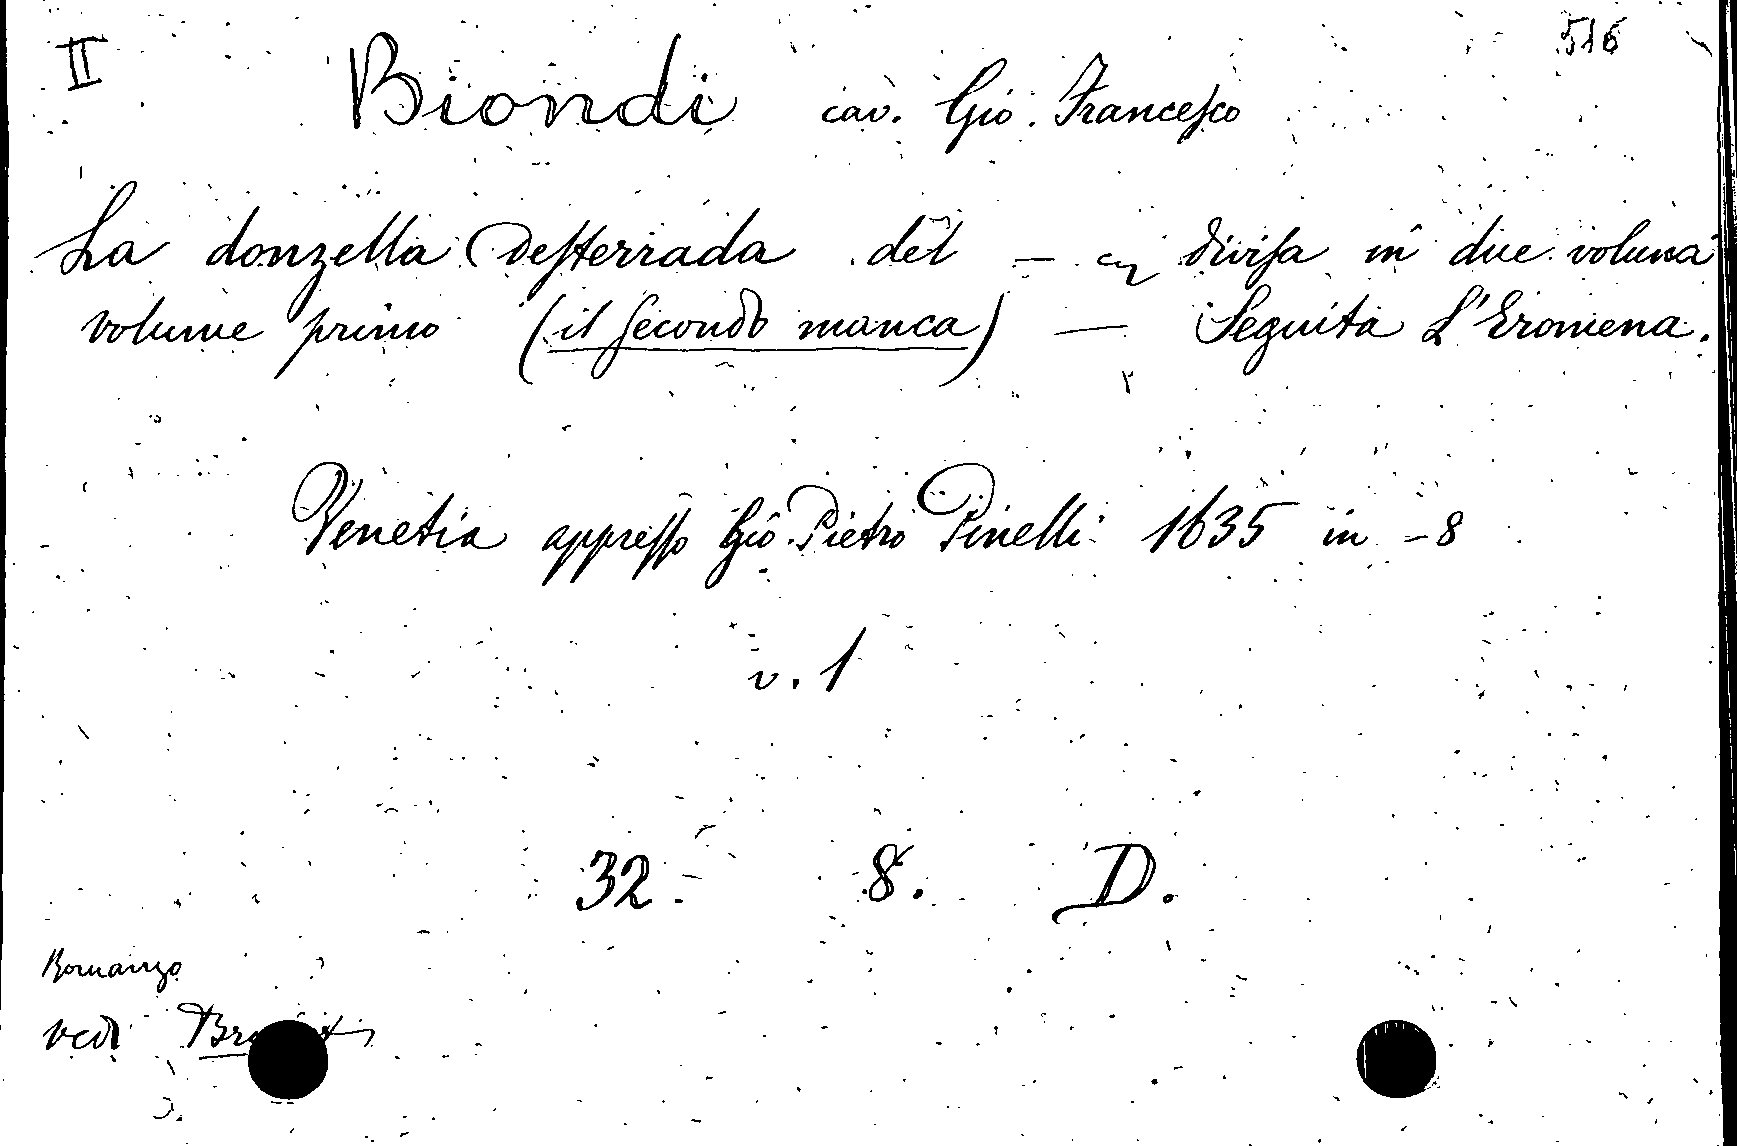 II
516
Biondi cav. Gio. Francesco
La donzella Desterrada del — divisa in due volumi
volume primo (il secondo manca) — Seguita L'Eromena.
Venetia appresso Gio. Pietro Pinelli 1635 in -8
v. 1
32. 8. D.
Romanzo
vedi